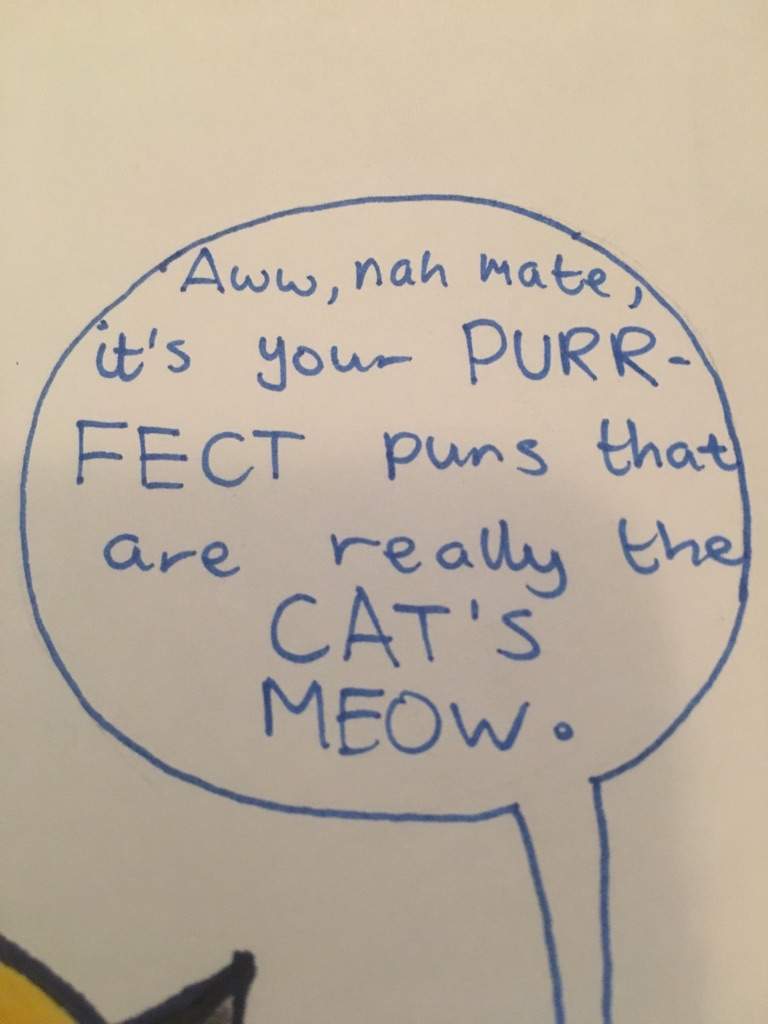 Aww, nah mate,
it's your PURR-
FECT puns that
are really the
CAT'S
MEOW.